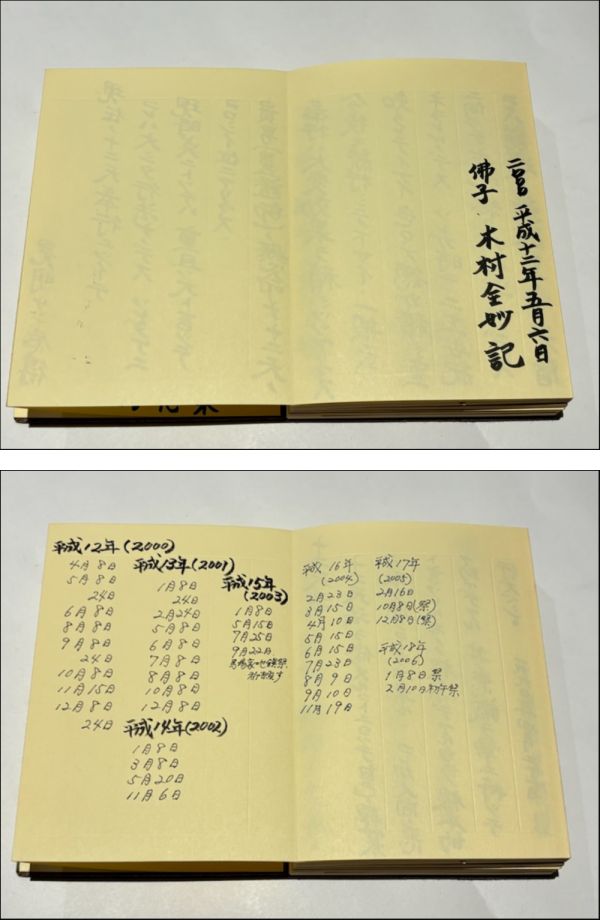 二〇〇〇 平成十二年五月六日
佛子 木村全妙 記
平成12年(2000)
4月8日
5月8日
24日
6月8日
8月8日
9月8日
24日
10月8日
11月15日
12月8日
24日
平成13年(2001)
1月8日
24日
2月24日
5月8日
6月8日
7月8日
8月8日
10月8日
12月8日
平成14年(2002)
1月8日
3月8日
5月20日
11月6日
平成15年
(2003)
1月8日
5月15日
7月25日
9月22日
平成16年
(2004)
2月23日
3月15日
4月10日
5月15日
6月15日
7月23日
8月9日
9月10日
11月19日
平成17年
(2005)
2月16日
10月8日(祭)
12月8日(祭)
平成18年
(2006)
1月8日祭
2月10日初午祭